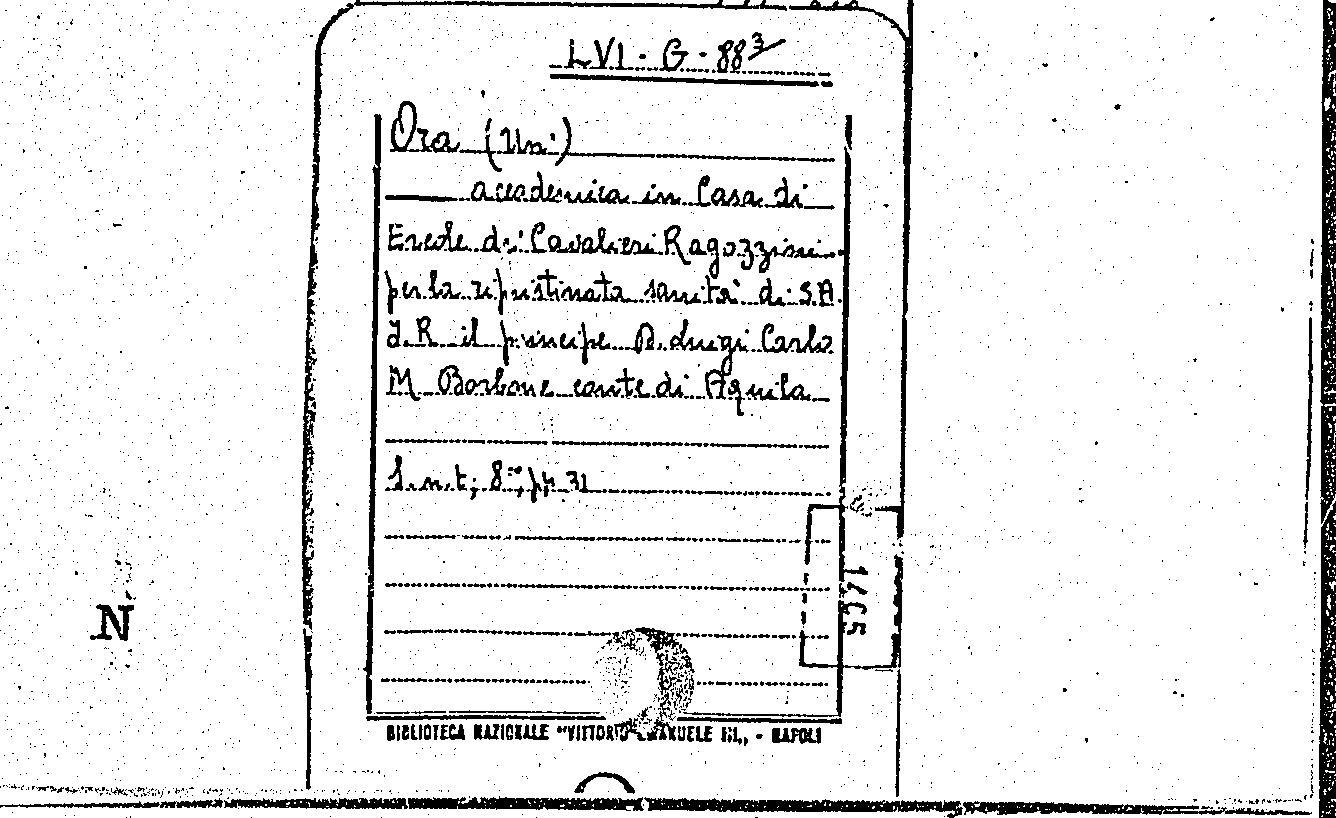 LVI - G - 88³
Ora (Un')
accademica in Casa di
Ercole de' Cavalieri Ragozzini
per la ripristinata sanità di S.A.
J.R il principe D. Luigi Carlo
M Borbone conte di Aquila
S.n.t; 8º, pp. 31
1405
N
BIBLIOTECA NAZIONALE "VITTORIO EMANUELE III„ - NAPOLI